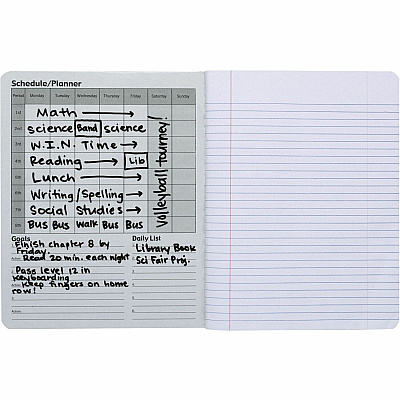 Schedule/Planner
Period Monday Tuesday Wednesday Thursday Friday Saturday Sunday
1st Math
2nd Science Band Science
3rd W.I.N. Time
4th Reading Lib
5th Lunch
6th Writing/Spelling
7th Social Studies
8th Bus Bus Walk Bus Bus
Volleyball tourney!
Goals
Finish chapter 8 by
Friday.
Action: Read 20 min. each night
Pass level 12 in
Keyboarding
Action: Keep fingers on home
row!
Action:
Daily List
1. Library Book
2. Sci Fair Proj.